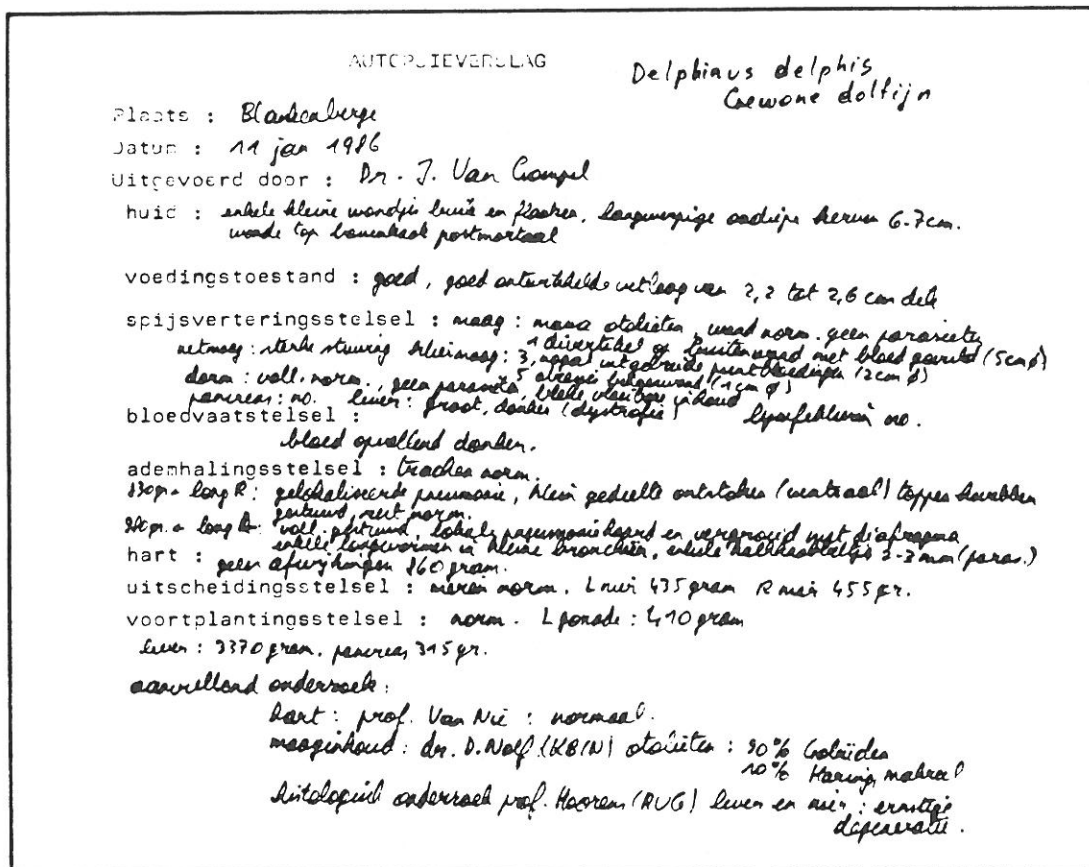 AUTOPSIEVERSLAG
Delphinus delphis
Gewone dolfijn
Plaats : Blankenberge
Datum : 11 jan 1986
Uitgevoerd door : Dr. J. Van Gompel
huid : enkele kleine wondjes buik en flanken, langwerpige ondiepe 6-7cm.
wonde top bovenkaak postmortaal
voedingstoestand : goed, goed ontwikkelde vetlaag van 2,2 tot 2,6 cm dik
spijsverteringsstelsel : maag : massa otolieten, wand norm. geen parasieten
netmaag : sterke stuwing slijmmaag : 1 divertikel op buitenwand met bloed gevuld (5cm ø)
3 puntbloedingen (2cm ø)
darm : voll. norm., geen parasieten, bleke vloeibare inhoud
5 (1cm ø)
pancreas : no. lever : groot, donker (dystrofie) lymfeklieren no.
bloedvaatstelsel :
bloed opvallend donker.
ademhalingsstelsel : trachea norm.
long R : gelokaliseerde pneumonie, klein gedeelte ontstoken (ventraal) toppen
gestuwd, rest norm.
long L : voll. gestuwd, lokale pneumoniehaard en vergroeid met diafragma
enkele longwormen in kleine bronchiën, enkele 2-3 mm (paras.)
hart : geen afwijkingen 860 gram.
uitscheidingsstelsel : nieren norm. L nier 435 gram R nier 455 gr.
voortplantingsstelsel : norm. L gonade : 410 gram
lever : 3370 gram, pancreas 315 gr.
aanvullend onderzoek :
hart : prof. Van Nie : normaal.
maaginhoud : dr. D. Nolf (KBIN) otolieten : 90% Gobiiden
10% Haring, makreel
histologisch onderzoek prof. Hoorens (RUG) lever en nier : ernstige
degeneratie.